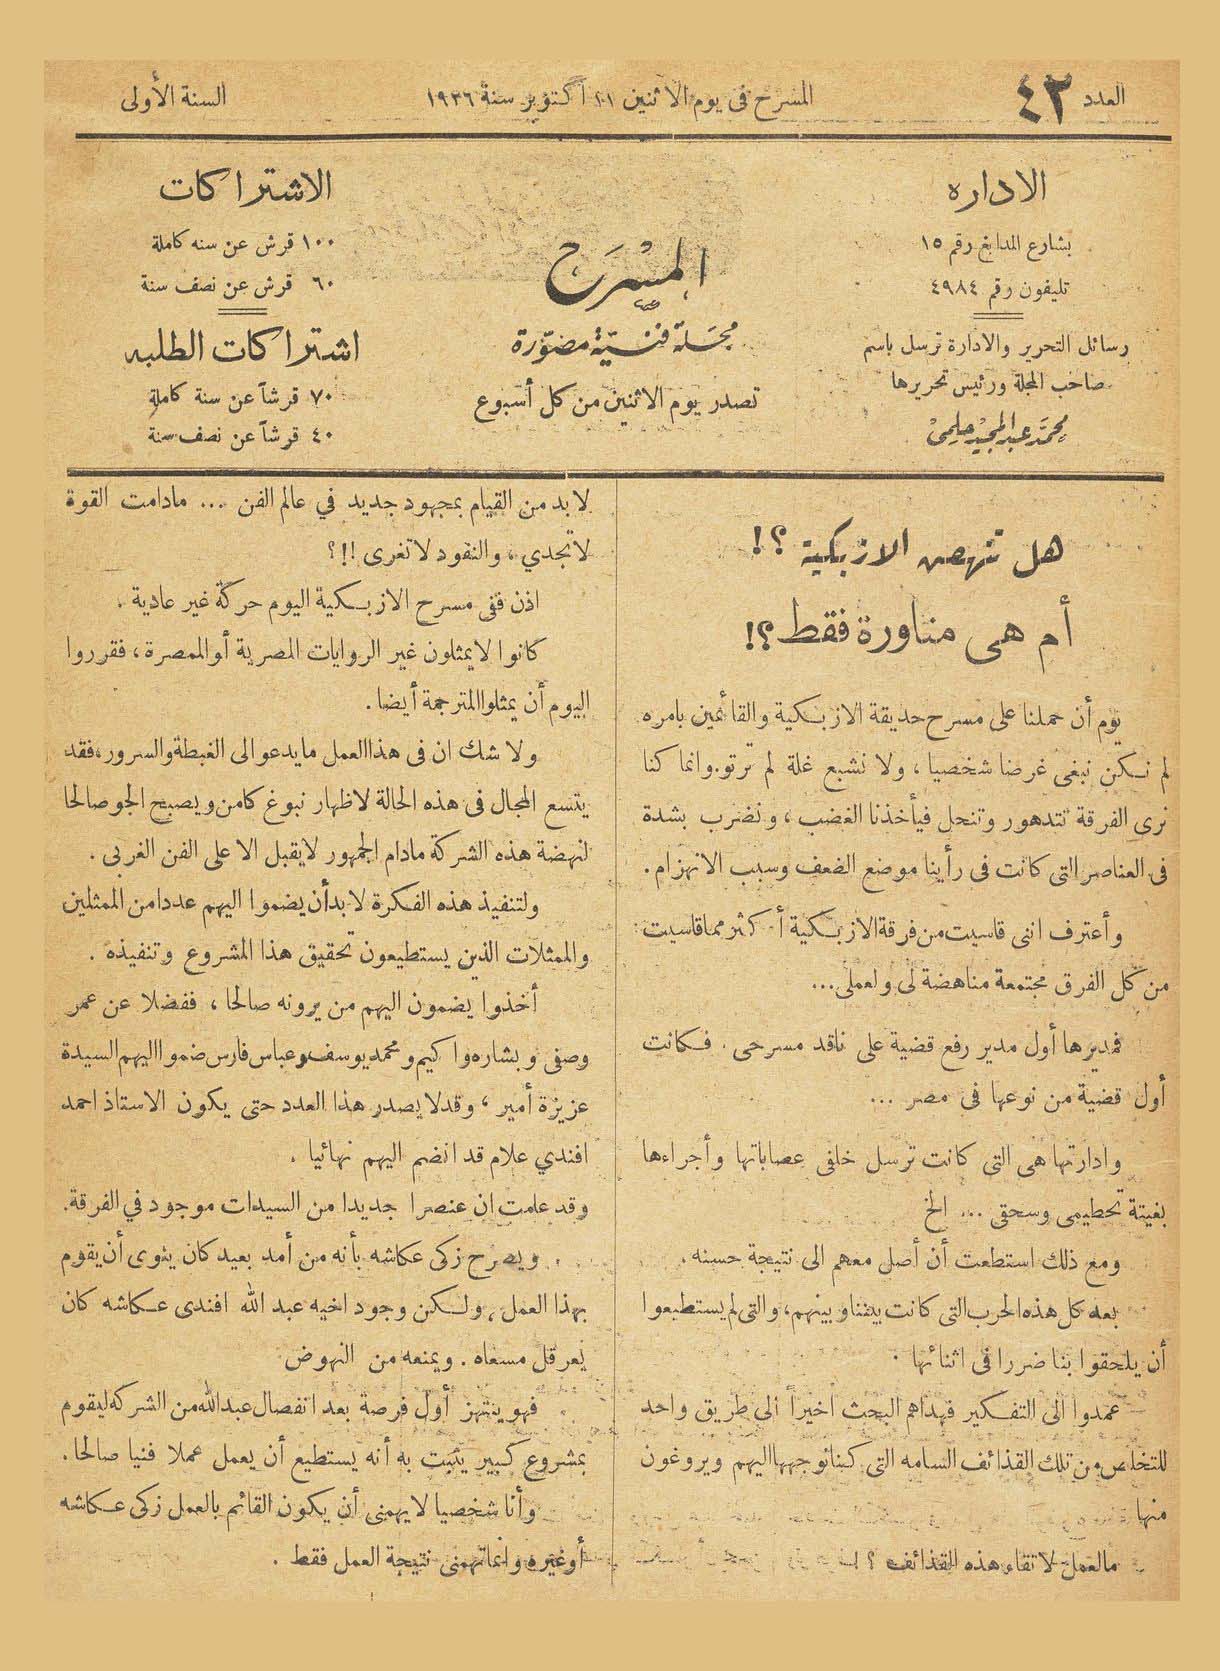 العدد ٤٢
المسرح فى يوم الاثنين ١١ أكتوبر سنة ١٩٢٦
السنة الأولى
الاداره
بشارع المدابغ رقم ١٥
تليفون رقم ٤٩٨٤
رسائل التحرير والادارة ترسل باسم
صاحب المجلة ورئيس تحريرها
محمد عبد المجيد حلمى
المسرح
مجلة فنية مصورة
تصدر يوم الاثنين من كل أسبوع
الاشتراكات
١٠٠ قرش عن سنه كاملة
٦٠ قرش عن نصف سنة
اشتراكات الطلبه
٧٠ قرشاً عن سنة كاملة
٤٠ قرشاً عن نصف سنة
هل تنهض الازبكية ؟!
أم هى مناورة فقط ؟!
يوم أن حملنا على مسرح حديقة الازبكية والقائمين بامره
لم نكن نبغى غرضا شخصيا ، ولا نشبع غلة لم ترتو. وانما كنا
نرى الفرقة تتدهور وتنحل فيأخذنا الغضب ، ونضرب بشدة
فى العناصر التى كانت فى رأينا موضع الضعف وسبب الانهزام .
وأعترف اننى قاسيت من فرقة الازبكية أكثر مما قاسيت
من كل الفرق مجتمعة مناهضة لى ولعملى ...
فمديرها أول مدير رفع قضية على ناقد مسرحى . فكانت
أول قضية من نوعها فى مصر ...
وادارتها هى التى كانت ترسل خلفى عصاباتها وأجراءها
بغيتة تحطيمى وسحقى ... الخ
ومع ذلك استطعت أن أصل معهم الى نتيجة حسنه .
بعد كل هذه الحرب التى كانت بيننا وبينهم ، والتى لم يستطيعوا
أن يلحقوا بنا ضررا فى اثنائها .
عمدوا الى التفكير فهداهم البحث اخيراً الى طريق واحد
للتخلص من تلك القذائف السامه التى كنا نوجهها اليهم ويروغون
منها
مالعمل لاتقاء هذه القذائف ؟ !
لابد من القيام بمجهود جديد في عالم الفن ... مادامت القوة
لاتجدي ، والنقود لاتغرى !!؟
اذن ففى مسرح الازبكية اليوم حركة غير عادية .
كانوا لايمثلون غير الروايات المصرية أو الممصرة ، فقرروا
اليوم أن يمثلوا المترجمة أيضا .
ولا شك ان فى هذا العمل مايدعو الى الغبطة والسرور ، فقد
يتسع المجال فى هذه الحالة لاظهار نبوغ كامن ويصبح الجو صالحا
لنهضة هذه الشركة مادام الجمهور لايقبل الا على الفن الغربى .
ولتنفيذ هذه الفكرة لابد أن يضموا اليهم عددا من الممثلين
والممثلات الذين يستطيعون تحقيق هذا المشروع وتنفيذه .
أخذوا يضمون اليهم من يرونه صالحا ، ففضلا عن عمر
وصفى وبشاره واكيم ومحمد يوسف وعباس فارس ضموا اليهم السيدة
عزيزة أمير ، وقد لا يصدر هذا العدد حتى يكون الاستاذ احمد
افندي علام قد انضم اليهم نهائيا .
وقد علمت ان عنصرا جديدا من السيدات موجود في الفرقة.
ويصرح زكى عكاشه بأنه من أمد بعيد كان ينوى أن يقوم
بهذا العمل ، ولكن وجود اخيه عبد الله افندى عكاشه كان
يعرقل مسعاه . ويمنعه من النهوض
فهو ينتهز أول فرصة بعد انفصال عبدالله من الشركه ليقوم
بمشروع كبير يثبت به أنه يستطيع أن يعمل عملا فنيا صالحا .
وأنا شخصيا لايهمنى أن يكون القائم بالعمل زكى عكاشه
أو غيره وانما تهمنى نتيجة العمل فقط .